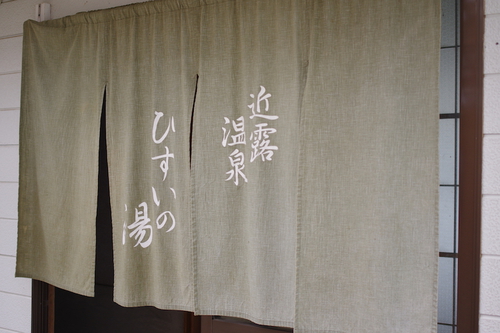 近露
温泉
ひすいの
湯